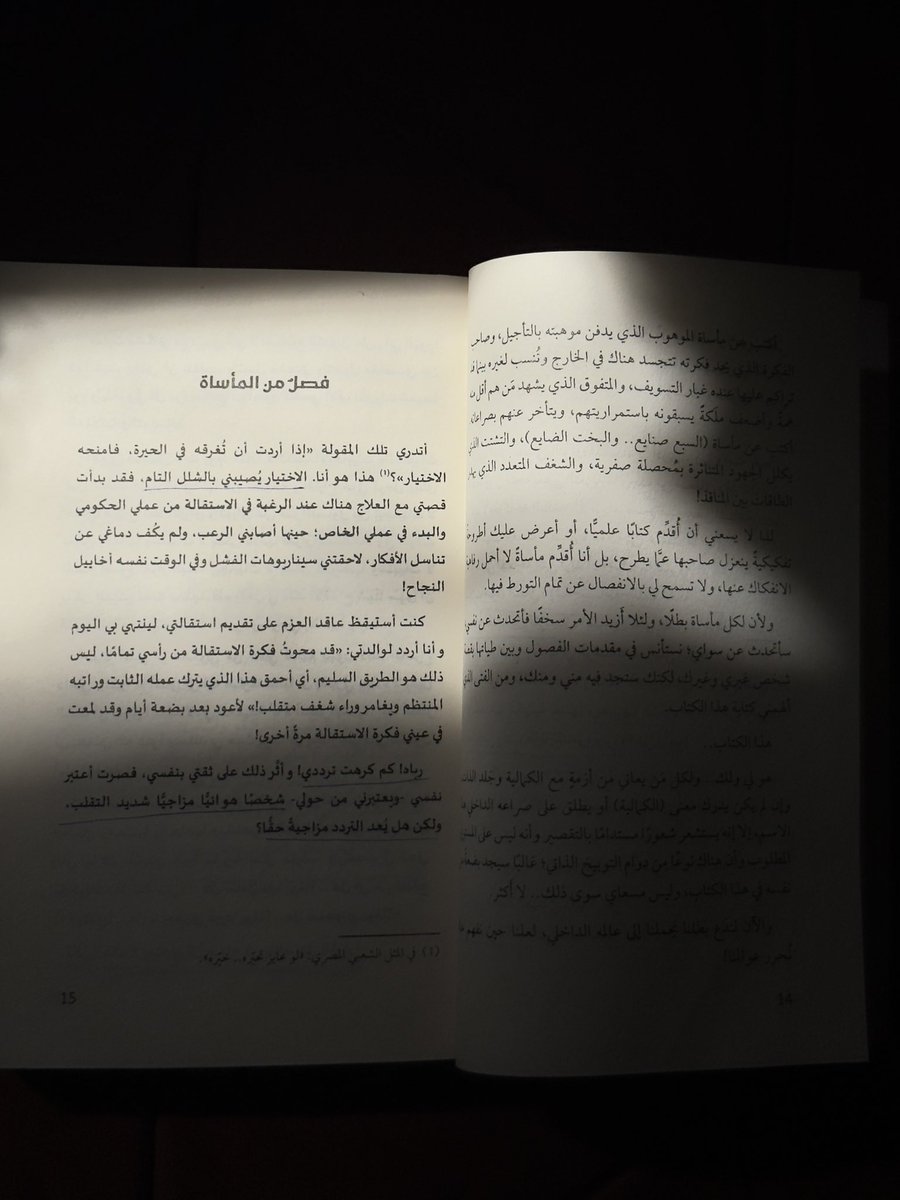 أكتب عن مأساة الموهوب الذي يدفن موهبته بالتأجيل، وصاحب
الفكرة الذي يجد فكرته تتجسد هناك في الخارج وتُنسب لغيره بينما
تراكم عليها عنده غبار التسويف، والمتفوق الذي يشهد مَن هم أقل منه
همةً وأضعف ملَكةً يسبقونه باستمراريتهم، ويتأخر عنهم بصراعاته
أكتب عن مأساة (السبع صنايع.. والبخت الضايع)، والتشتت الذي
يكلل الجهود المتناثرة بمُحصلة صفرية، والشغف المتعدد الذي
الطاقات بين المنافذ!
لذا لا يسعني أن أُقدِّم كتابًا علميًّا، أو أعرض عليك أطروحة
تفكيكيةً ينعزل صاحبها عمَّا يطرح، بل أنا أُقدِّم مأساةً لا أحمل رفاهية
الانفكاك عنها، ولا تسمح لي بالانفصال عن تمام التورط فيها.
ولأن لكل مأساة بطلًا، ولئلا أَزيد الأمر سخفًا فأتحدث عن نفسي
سأتحدث عن سواي؛ نستأنس في مقدمات الفصول وبين طياتها
شخص غيري وغيرك، لكنك ستجد فيه مني ومنك، ومن الفتى الذي
ألهمني كتابة هذا الكتاب.
هذا الكتاب..
هو لي ولك.. ولكل مَن يعاني من أزمةٍ مع الكمالية وجَلد الذات
وإن لم يكن يدرك معنى (الكمالية) أو يطلق على صراعه الداخلي هذا
الاسم، إلا إنه يستشعر شعورًا مستدامًا بالتقصير وأنه ليس على المستوى
المطلوب وأن هناك نوعًا من دوام التوبيخ الذاتي؛ غالبًا سيجد بضعةً من
نفسه في هذا الكتاب، وليس مسعاي سوى ذلك.. لا أكثر.
والآن لندع بطلنا يحملنا إلى عالمه الداخلي، لعلنا حين نفهم
نُحرر عوالمنا!
14
فصلٌ من المأساة
أتدري تلك المقولة «إذا أردت أن تُغرقه في الحيرة، فامنحه
الاختيار»؟(1) هذا هو أنا. الاختيار يُصيبني بالشلل التام، فقد بدأت
قصتي مع العلاج هناك عند الرغبة في الاستقالة من عملي الحكومي
والبدء في عملي الخاص؛ حينها أصابني الرعب، ولم يكُف دماغي عن
تناسل الأفكار، لاحقتني سيناريوهات الفشل وفي الوقت نفسه أخاييل
النجاح!
كنت أستيقظ عاقد العزم على تقديم استقالتي، لينتهي بي اليوم
وأنا أردد لوالدتي: «قد محوتُ فكرة الاستقالة من رأسي تمامًا، ليس
ذلك هو الطريق السليم، أي أحمق هذا الذي يترك عمله الثابت وراتبه
المنتظم ويغامر وراء شغف متقلب!» لأعود بعد بضعة أيام وقد لمعت
في عيني فكرة الاستقالة مرةً أخرى!
رباه! كم كرهت ترددي! وأثَّر ذلك على ثقتي بنفسي، فصرت أعتبر
نفسي -ويعتبرني من حولي- شخصًا هوائيًّا مزاجيًّا شديد التقلب،
ولكن هل يُعد التردد مزاجيةً حقًّا؟
(1) في المثل الشعبي المصري: «لو عايز تحيّره.. خيّره».
15